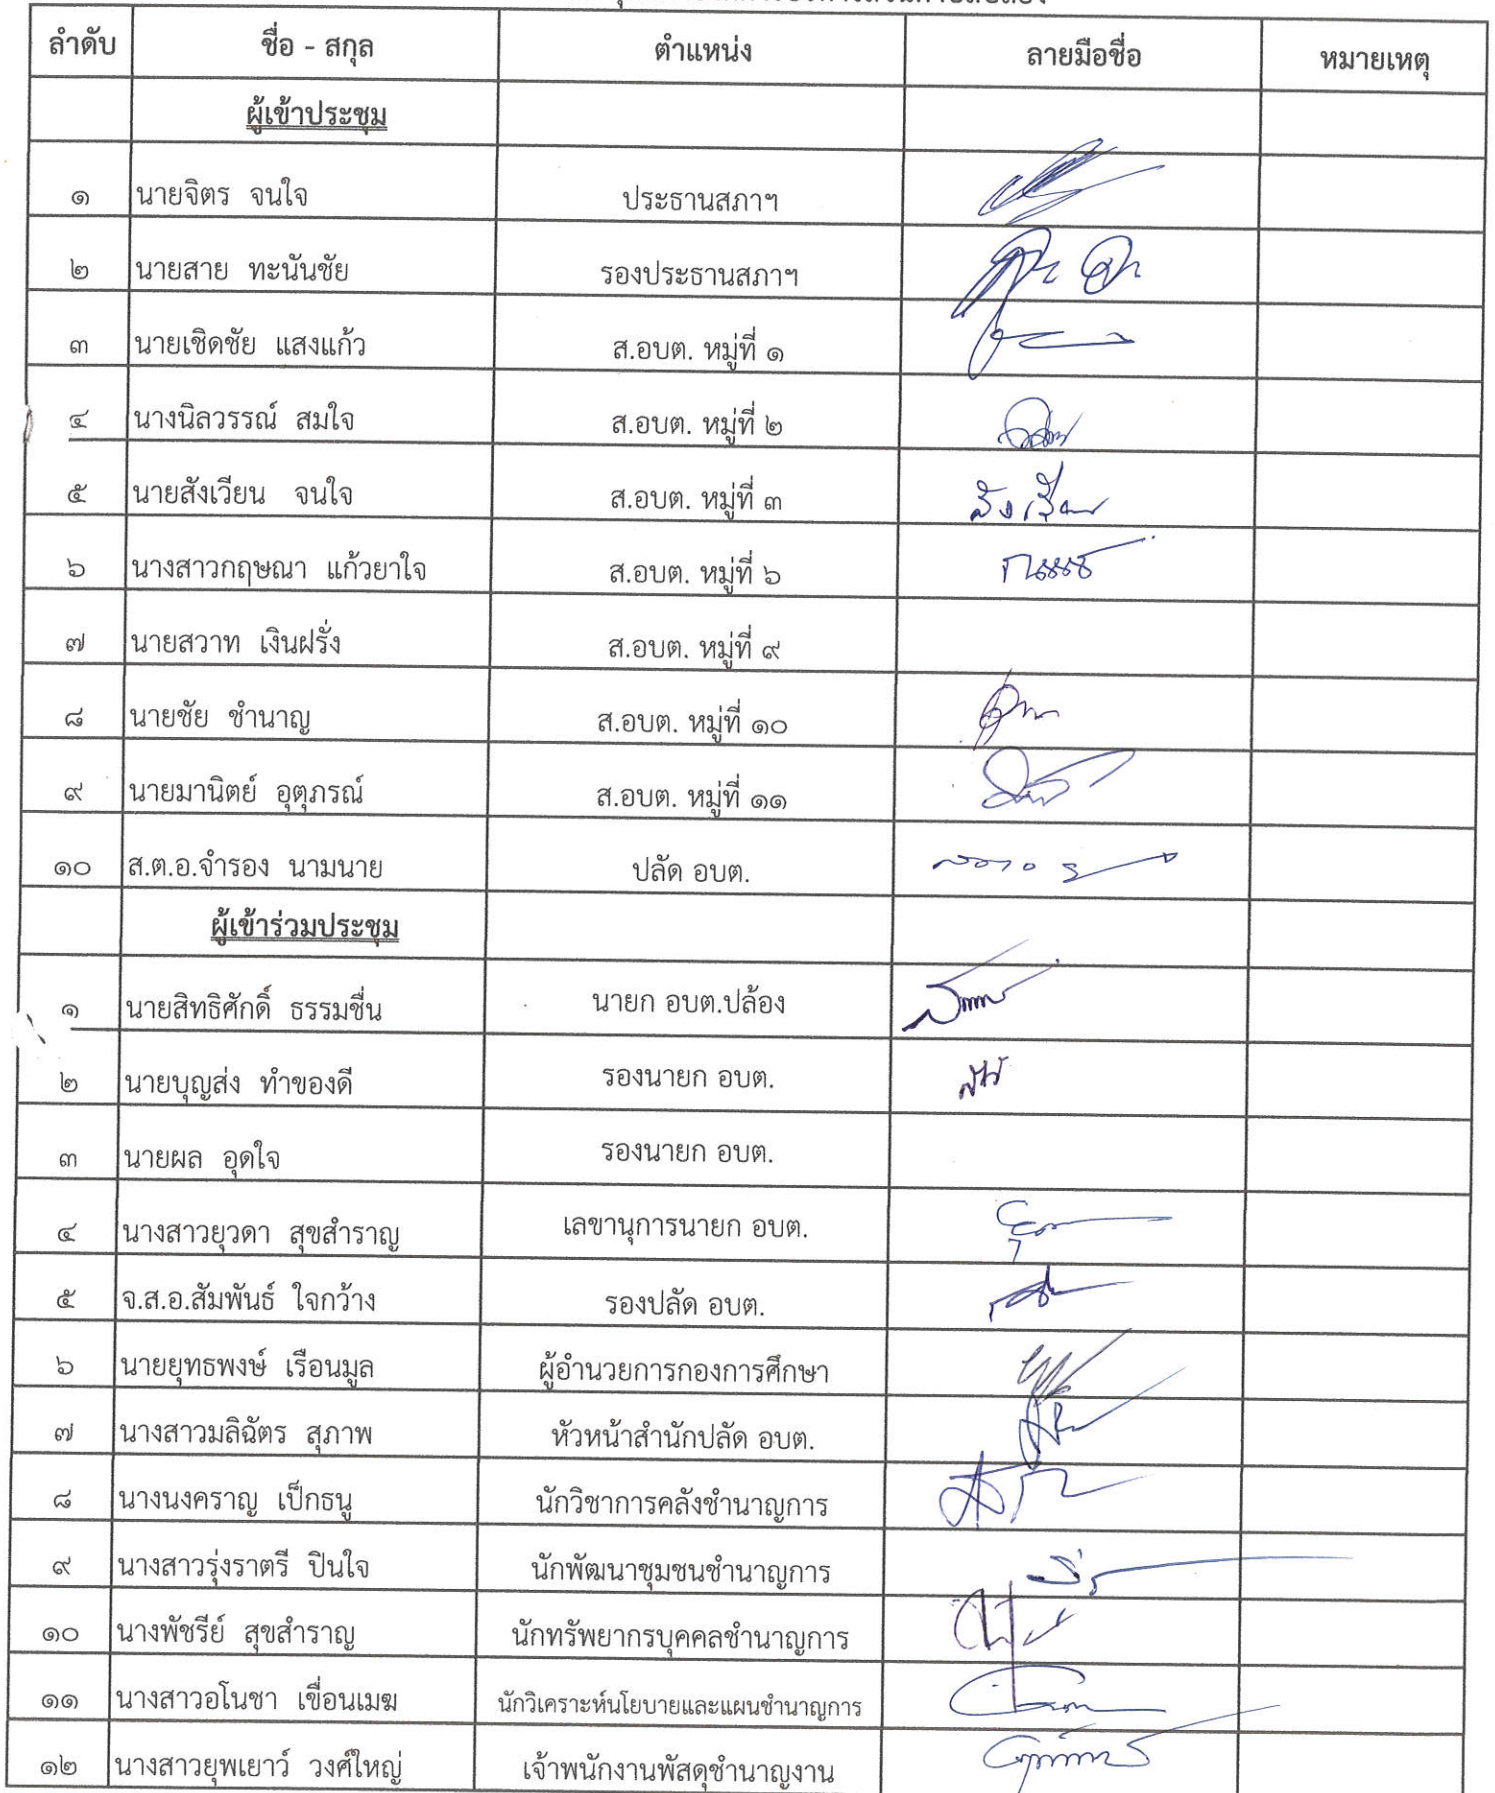 ลำดับ ชื่อ - สกุล ตำแหน่ง ลายมือชื่อ หมายเหตุ
ผู้เข้าประชุม
๑ นายจิตร จนใจ ประธานสภาฯ
๒ นายสาย ทะนันชัย รองประธานสภาฯ
๓ นายเชิดชัย แสงแก้ว ส.อบต. หมู่ที่ ๑
๔ นางนิลวรรณ์ สมใจ ส.อบต. หมู่ที่ ๒
๕ นายสังเวียน จนใจ ส.อบต. หมู่ที่ ๓ สังเวียน
๖ นางสาวกฤษณา แก้วยาใจ ส.อบต. หมู่ที่ ๖
๗ นายสวาท เงินฝรั่ง ส.อบต. หมู่ที่ ๙
๘ นายชัย ชำนาญ ส.อบต. หมู่ที่ ๑๐
๙ นายมานิตย์ อุตุภรณ์ ส.อบต. หมู่ที่ ๑๑
๑๐ ส.ต.อ.จำรอง นามนาย ปลัด อบต.
ผู้เข้าร่วมประชุม
๑ นายสิทธิศักดิ์ ธรรมชื่น นายก อบต.ปล้อง
๒ นายบุญส่ง ทำของดี รองนายก อบต.
๓ นายผล อุดใจ รองนายก อบต.
๔ นางสาวยุวดา สุขสำราญ เลขานุการนายก อบต.
๕ จ.ส.อ.สัมพันธ์ ใจกว้าง รองปลัด อบต.
๖ นายยุทธพงษ์ เรือนมูล ผู้อำนวยการกองการศึกษา
๗ นางสาวมลิฉัตร สุภาพ หัวหน้าสำนักปลัด อบต.
๘ นางนงคราญ เป็กธนู นักวิชาการคลังชำนาญการ
๙ นางสาวรุ่งราตรี ปินใจ นักพัฒนาชุมชนชำนาญการ
๑๐ นางพัชรีย์ สุขสำราญ นักทรัพยากรบุคคลชำนาญการ
๑๑ นางสาวอโนชา เขื่อนเมฆ นักวิเคราะห์นโยบายและแผนชำนาญการ
๑๒ นางสาวยุพเยาว์ วงศ์ใหญ่ เจ้าพนักงานพัสดุชำนาญงาน